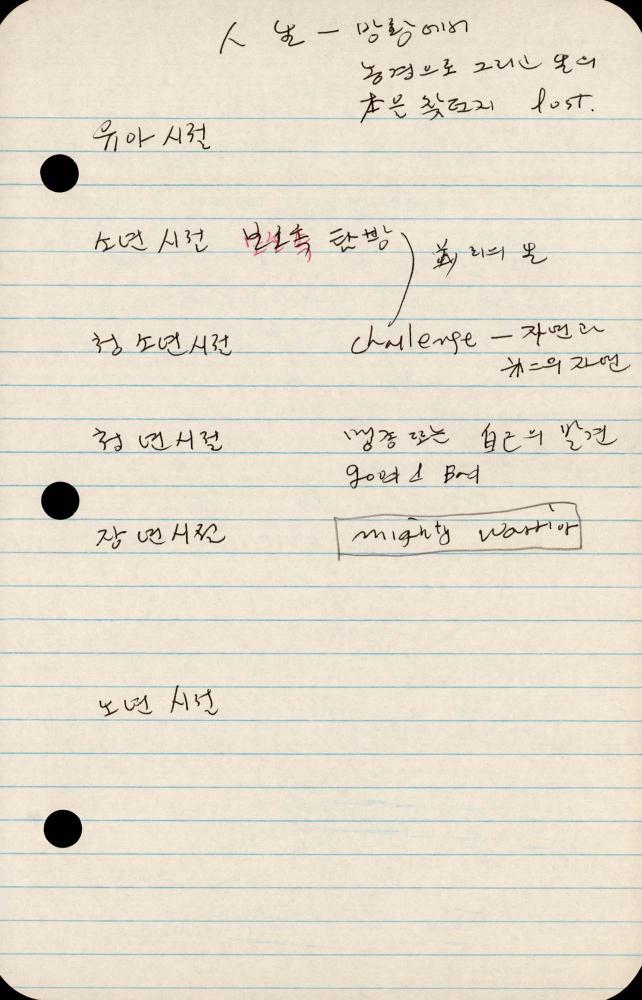 人 生 - 방황에서
동경으로 그리고 生의
本은 찾던지 lost.
유아 시절
소년 시절 탐방
의 꿈
청 소년 시절 challenge - 자연과
第二의 자연
청 년 시절 또는 自己의 발견
good & Bad
장 년 시절 mighty warrior
노년 시절